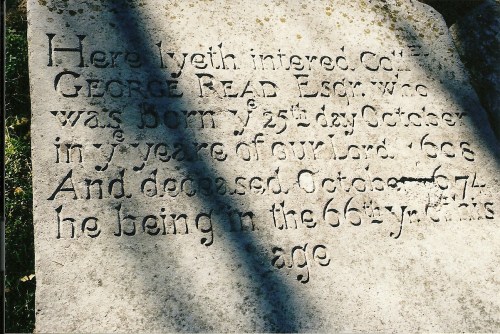 Here lyeth intered Coll
GEORGE READ Esqr. who
was Born yᵉ 25th day October
in yᵉ yeare of our Lord 1608
And deceased October 1674
he being in the 66th Yr of his
age